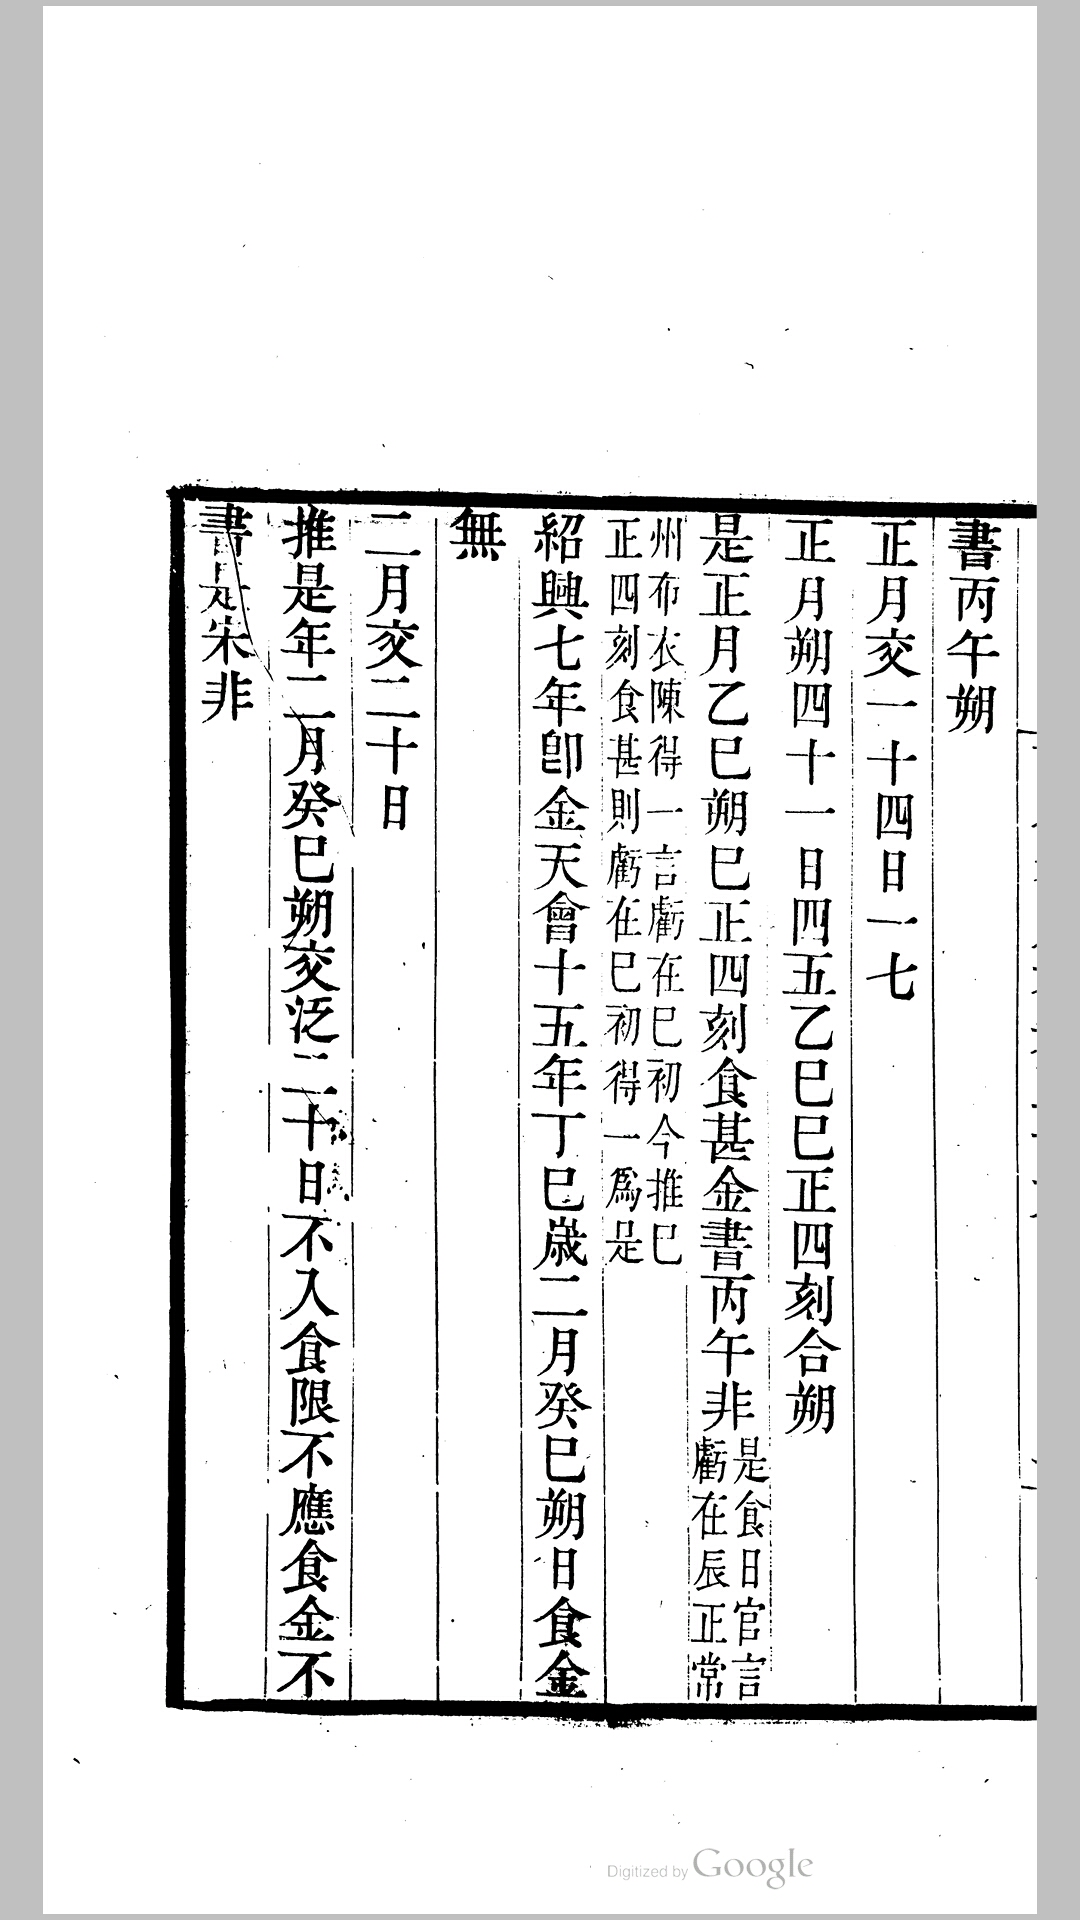 書丙午朔
正月交一十四日一七
正月朔四十一日四五乙巳巳正四刻合朔
是正月乙巳朔巳正四刻食甚金書丙午非是食日官言
虧在辰正常
州布衣陳得一言虧在巳初今推巳
正四刻食甚則虧在巳初得一爲是
紹興七年卽金天會十五年丁巳嵗二月癸巳朔日食金
無
二月交二十日
推是年二月癸巳朔交泛二十日不入食限不應食金不
書是宋非
Digitized by Google